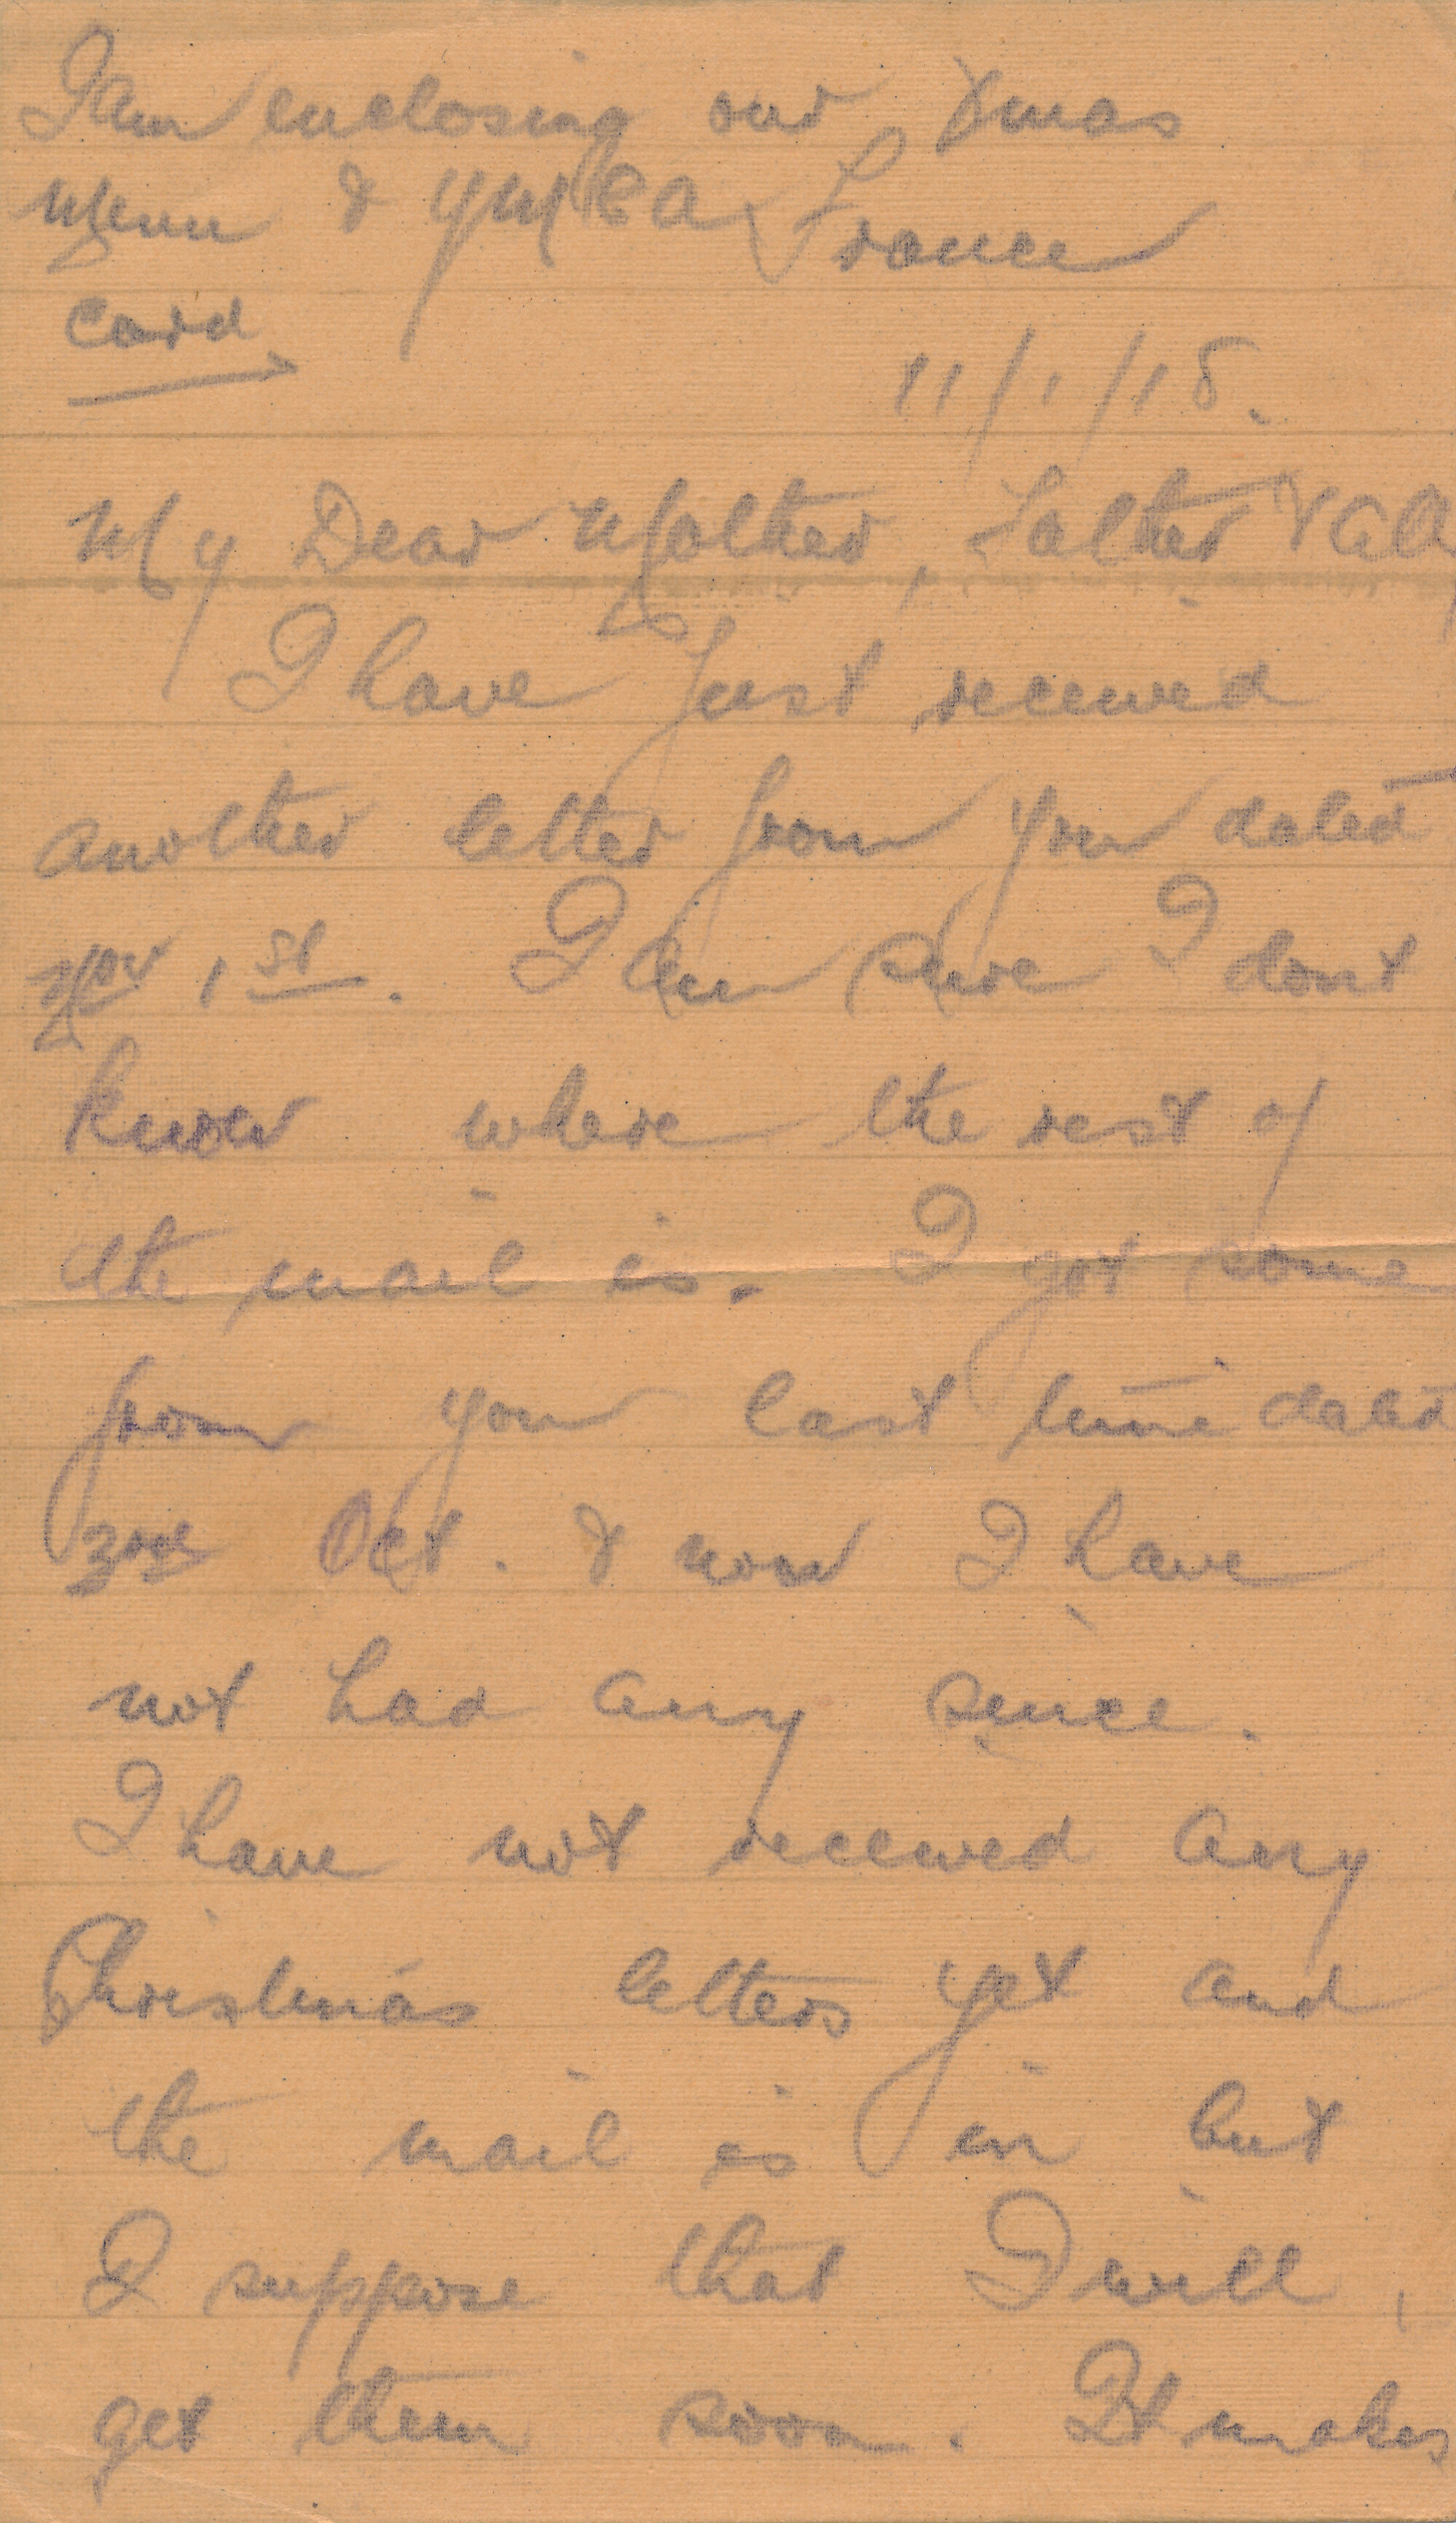 I am enclosing our Xmas
Menu & YMCA France
card
11/1/18.
My Dear Mother, Father & All
I have just received
another letter from you dated
Nov 1st. I am sure I dont
know where the rest of
the mail is. I got some
from you last time dated
3rd Oct. & now I have
not had any since.
I have not received any
Christmas letters yet and
the mail is in but
I suppose that I will,
get them soon. It makes